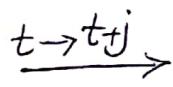 t→t+j